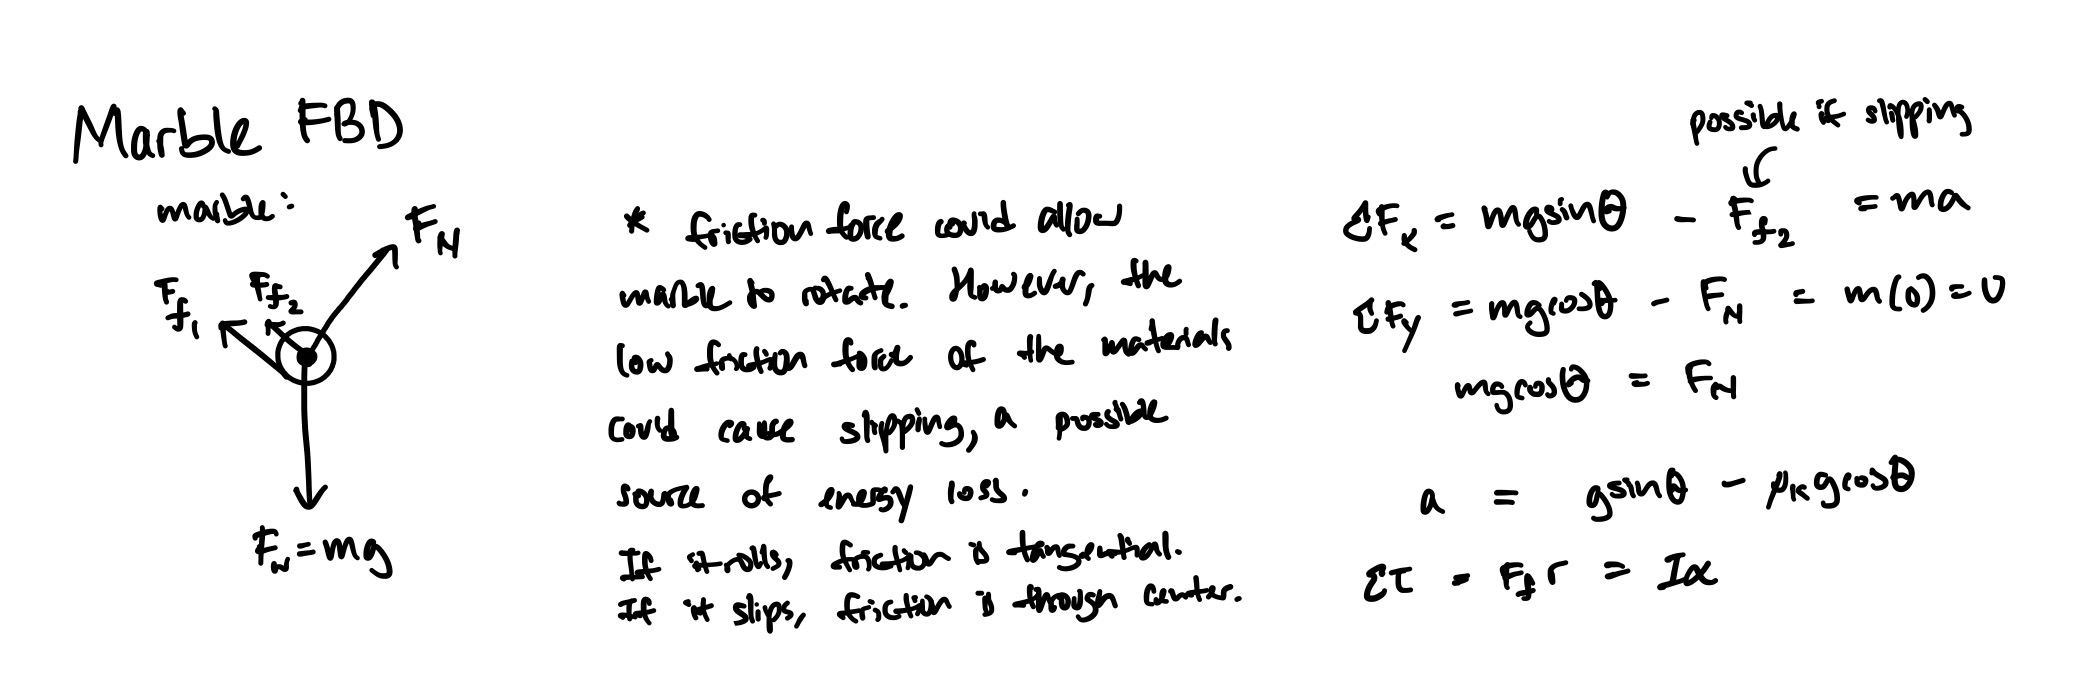 Marble FBD
marble:
F_N
F_f1
F_f2
F_w = mg
* friction force could allow
marble to rotate. However, the
low friction force of the materials
could cause slipping, a possible
source of energy loss.
If it rolls, friction is tangential.
If it slips, friction is through center.
possible if slipping
ΣF_x = mgsinθ - F_f2 = ma
ΣF_y = mgcosθ - F_N = m(0) = 0
mgcosθ = F_N
a = gsinθ - μ_k gcosθ
Στ = F_f r = Iα